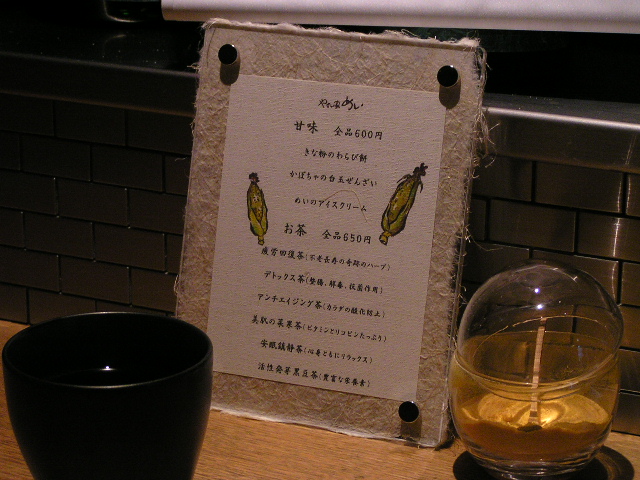 やさい家めい
甘味 全品600円
きな粉のわらび餅
かぼちゃの白玉ぜんざい
めいのアイスクリーム
お茶 全品650円
疲労回復茶(不老長寿の奇跡のハーブ)
デトックス茶(整腸、解毒、抗菌作用)
アンチエイジング茶(カラダの酸化防止)
美肌の菜果茶(ビタミンとリコピンたっぷり)
安眠鎮静茶(心身ともにリラックス)
活性発芽黒豆茶(豊富な栄養素)